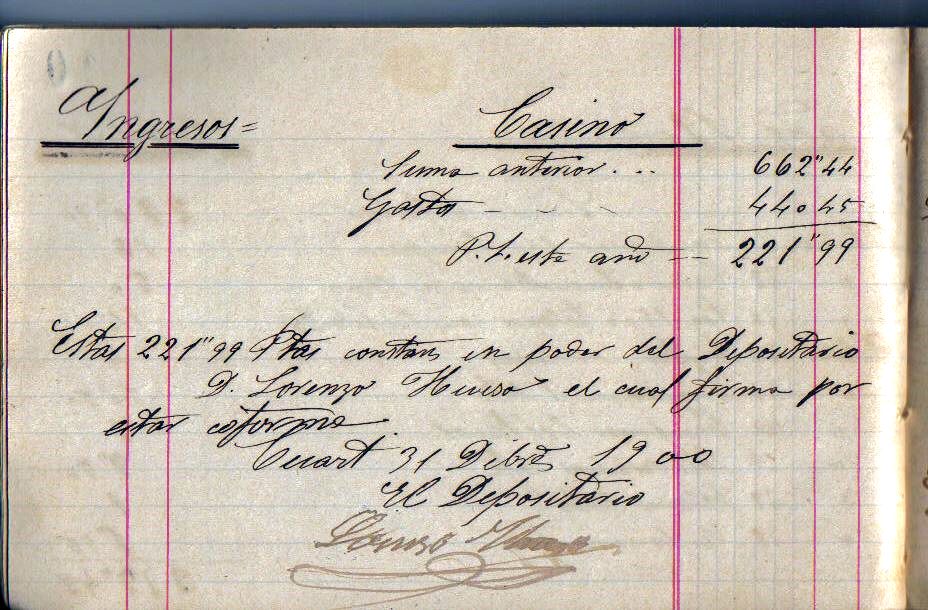 Ingresos =
Casino
Suma anterior . . . 662"44
Gastos - - - 440 45
P. t. este año -- 221"99
Estas 221"99 Ptas constan en poder del Depositario
D. Lorenzo Hueso el cual firma por
estar coforme.
Cuart 31 Dibre 1900
El Depositario
Lorenzo Hueso